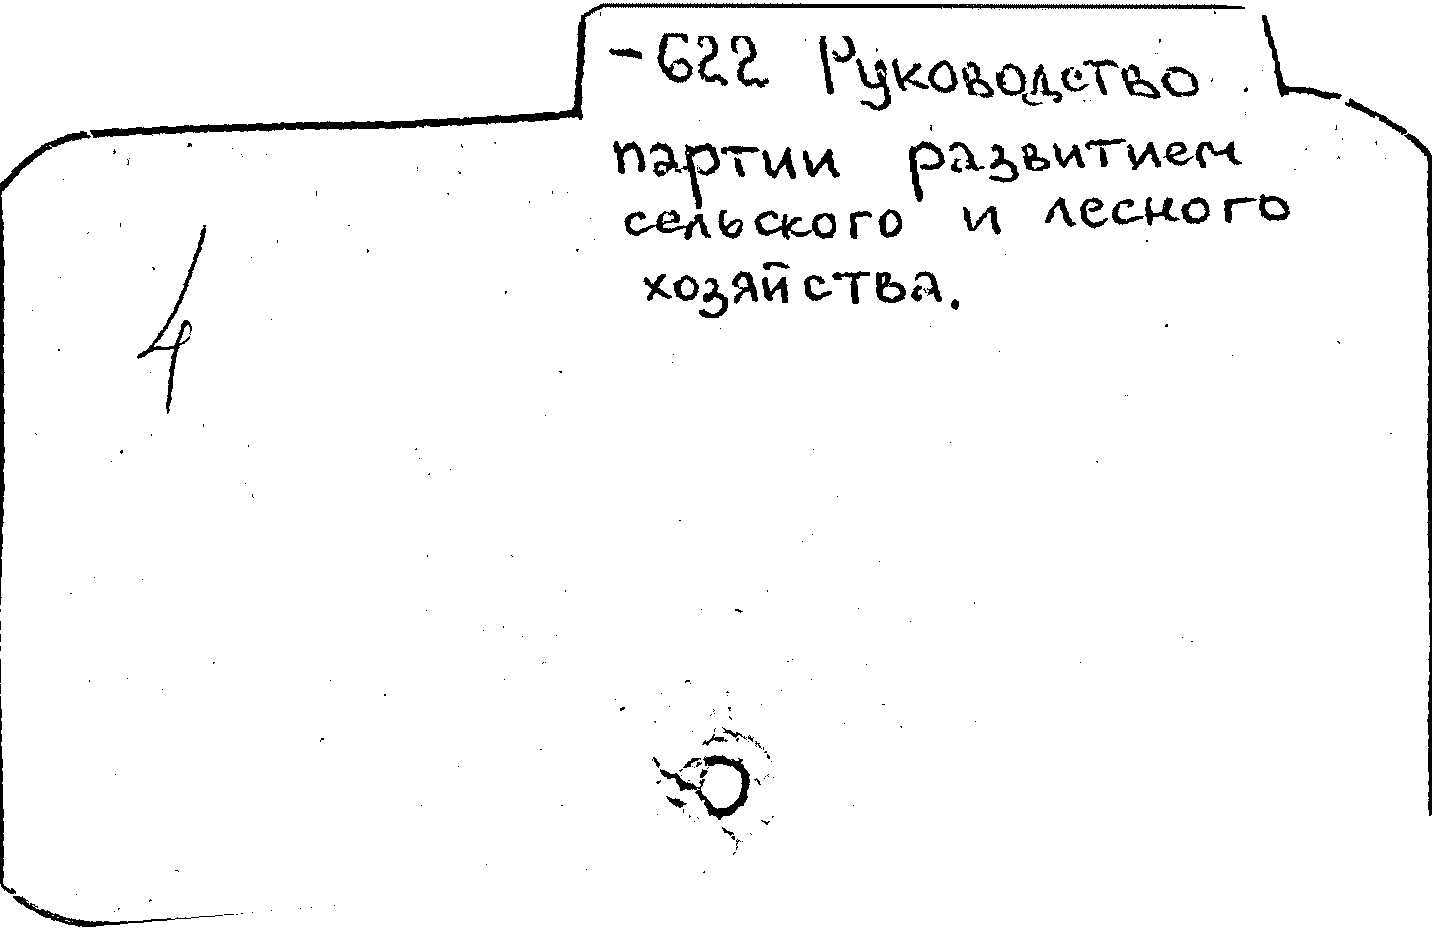 -622 Руководство
партии развитием
сельского и лесного
хозяйства.
4